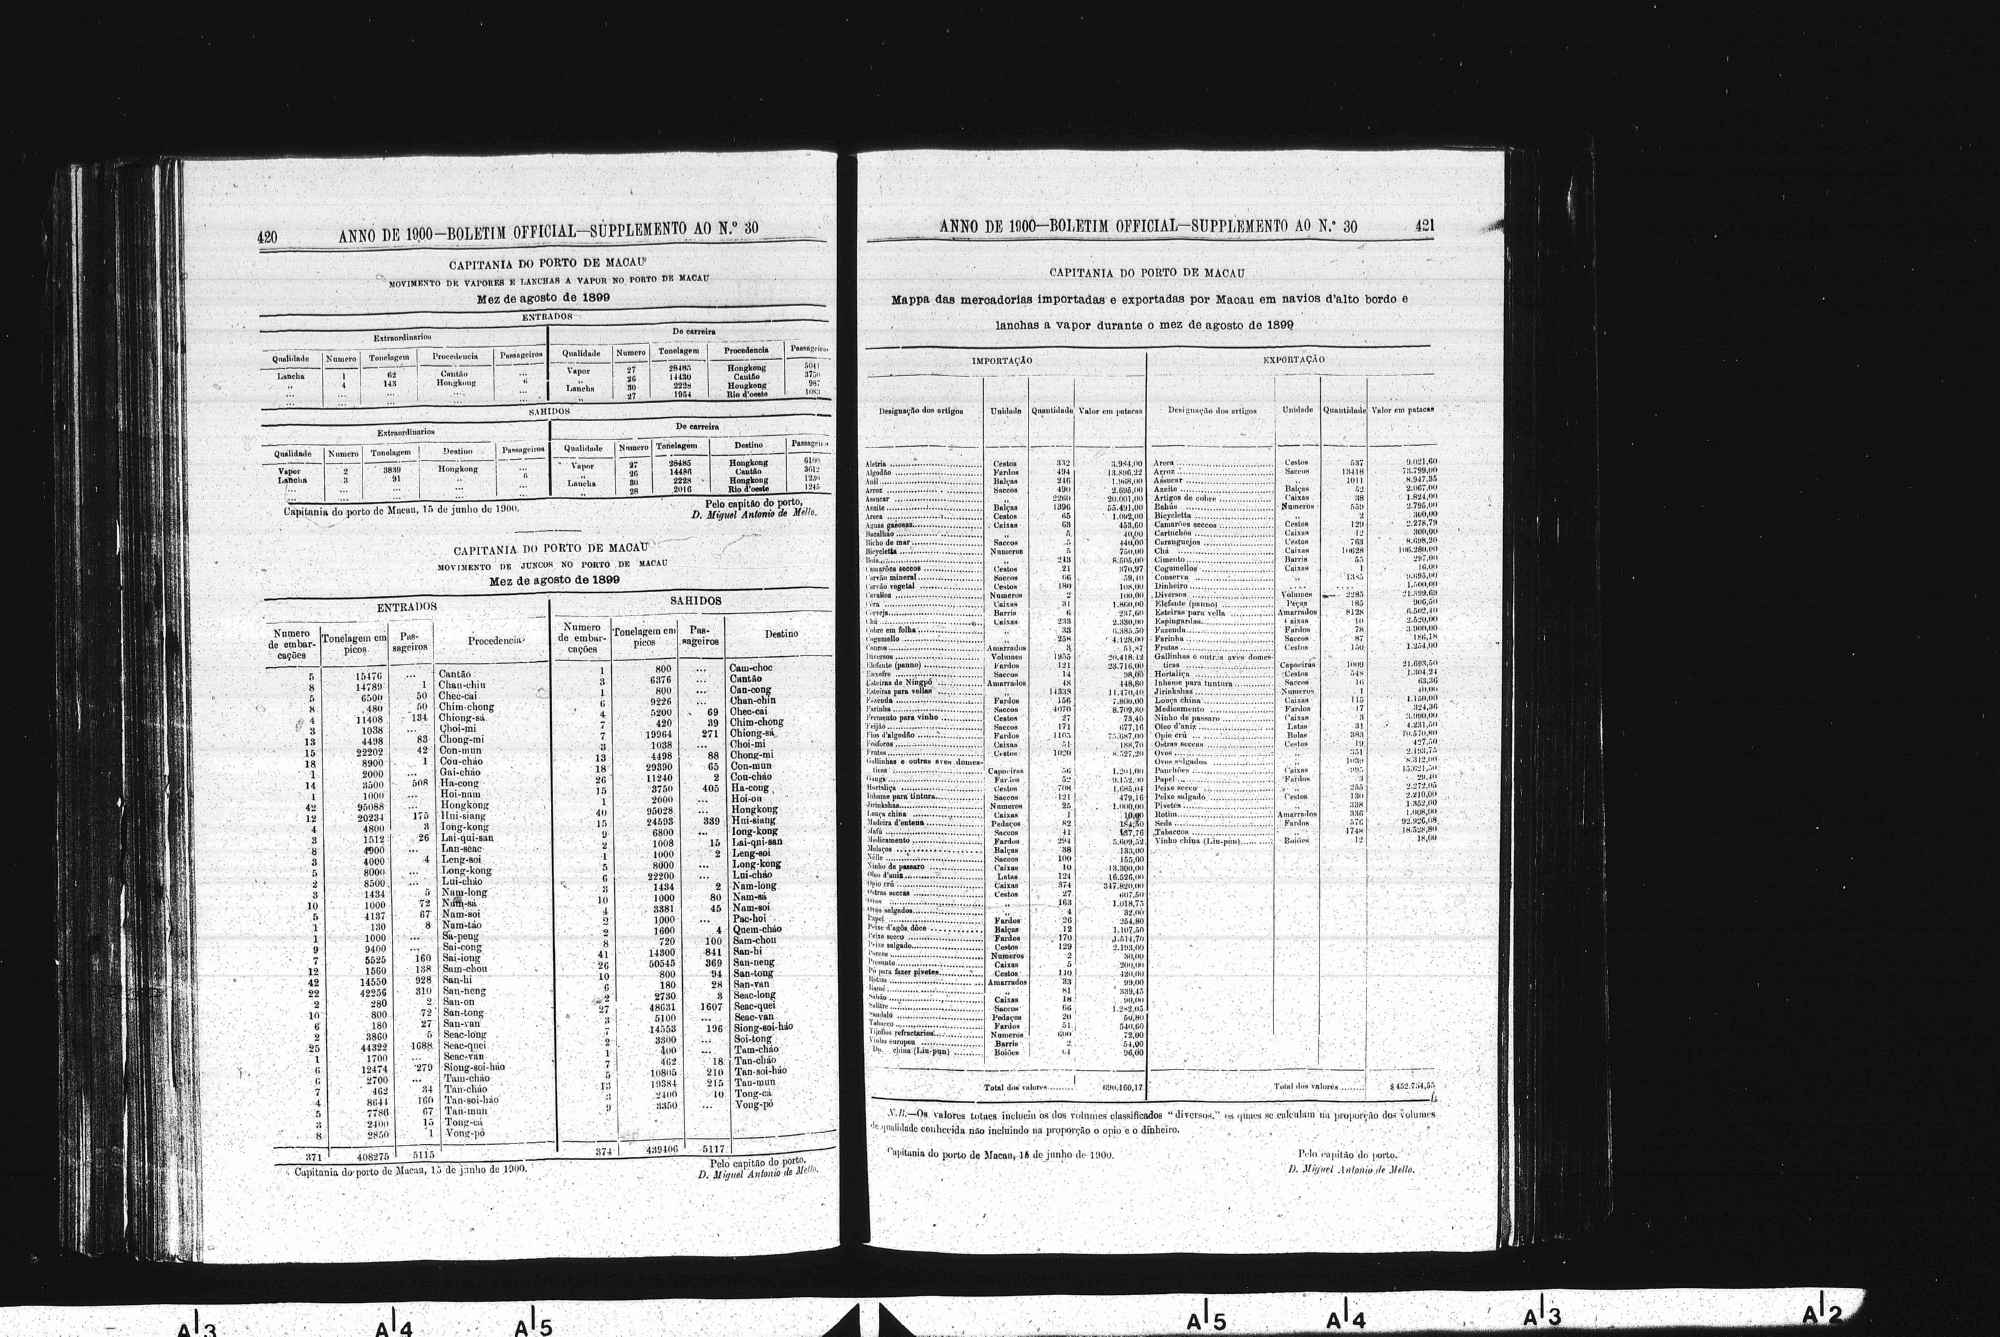 420 ANNO DE 1900—BOLETIM OFFICIAL—SUPPLEMENTO AO N.º 30
CAPITANIA DO PORTO DE MACAU
MOVIMENTO DE VAPORES E LANCHAS A VAPOR NO PORTO DE MACAU
Mez de agosto de 1899
ENTRADOS
Extraordinarios De carreira
Qualidade Numero Tonelagem Procedencia Passageiros Qualidade Numero Tonelagem Procedencia Passageiros
Lancha 1 62 Cantão ... Vapor 27 28485 Hongkong 5041
,, 4 143 Hongkong 6 ,, 26 14430 Cantão 3750
... ... ... ... Lancha 30 2228 Hongkong 987
... ... ... ... ,, 27 1954 Rio d'oeste 1083
SAHIDOS
Extraordinarios De carreira
Qualidade Numero Tonelagem Destino Passageiros Qualidade Numero Tonelagem Destino Passageiros
Vapor 2 3839 Hongkong ... Vapor 27 28485 Hongkong
Lancha 3 91 ,, 6 ,, 26 14486 Cantão 3612
... ... ... ... Lancha 30 2228 Hongkong
... ... ... ... ,, 28 2016 Rio d'oeste 1245
Capitania do porto de Macau, 15 de junho de 1900.
Pelo capitão do porto,
D. Miguel Antonio de Mello.
CAPITANIA DO PORTO DE MACAU
MOVIMENTO DE JUNCOS NO PORTO DE MACAU
Mez de agosto de 1899
ENTRADOS SAHIDOS
Numero de embarcações Tonelagem em picos Passageiros Procedencia Numero de embarcações Tonelagem em picos Passageiros Destino
5 15476 ... Cantão 1 800 ... Cam-choc
8 14789 1 Chan-chin 3 6376 ... Cantão
5 6500 50 Chec-cai 1 800 ... Can-cong
8 480 50 Chim-chong 6 9226 ... Chan-chin
4 11408 134 Chiong-sá 4 5200 69 Chec-cai
3 1038 ... Choi-mi 7 420 39 Chim-chong
13 4498 83 Chong-mi 7 19964 271 Chiong-sá
15 22202 42 Con-mun 3 1038 ... Choi-mi
18 8900 1 Cou-cháo 13 4498 88 Chong-mi
1 2000 ... Gai-cháo 18 29390 65 Con-mun
14 3500 508 Ha-cong 26 11240 2 Cou-cháo
1 1000 ... Hoi-nam 15 3750 405 Ha-cong
42 95088 ... Hongkong 1 2000 ... Hoi-on
12 20234 175 Hui-siang 40 95028 ... Hongkong
4 4800 3 Iong-kong 15 24593 339 Hui-siang
3 1512 26 Lai-qui-san 9 6800 ... Iong-kong
8 4900 ... Lan-seac 2 1008 15 Lai-qui-san
3 4000 4 Leng-soi 1 1000 2 Leng-soi
5 8000 ... Long-kong 5 8000 ... Long-kong
2 8500 ... Lui-cháo 6 22200 ... Lui-cháo
3 1434 5 Nam-long 3 1434 2 Nam-long
10 1000 72 Nam-sá 10 1000 80 Nam-sá
5 4137 67 Nam-soi 4 3381 45 Nam-soi
1 130 8 Nam-táo 2 1000 ... Pac-hoi
1 1000 ... Sa-peng 2 1600 4 Quem-cháo
9 9400 ... Sai-cong 8 720 100 Sam-chou
7 5525 160 Sai-iong 41 14300 841 San-hi
12 1560 138 Sam-chou 26 50545 369 San-neng
42 14550 928 San-hi 10 800 94 San-tong
22 42256 310 San-neng 6 180 28 San-van
2 280 2 San-on 2 2730 3 Seac-long
10 800 72 San-tong 27 48631 1607 Seac-quei
6 180 27 San-van 3 5100 ... Seac-van
2 3860 5 Seac-long 7 14553 196 Siong-soi-háo
25 44322 1688 Seac-quei 2 3300 ... Soi-tong
1 1700 ... Seac-van 1 400 ... Tam-cháo
6 12474 279 Siong-soi-háo 7 462 18 Tan-cháo
6 2700 ... Tam-cháo 5 10805 210 Tan-soi-háo
7 462 34 Tan-cháo 13 19384 215 Tan-mun
4 8644 160 Tan-soi-háo 3 2400 10 Tong-cá
5 7786 67 Tan-mun 9 3350 ... Vong-pó
3 2400 15 Tong-cá
8 2850 1 Vong-pó
371 408275 5115 374 439406 5117
Capitania do porto de Macau, 15 de junho de 1900.
Pelo capitão do porto,
D. Miguel Antonio de Mello.
ANNO DE 1900—BOLETIM OFFICIAL—SUPPLEMENTO AO N.º 30 421
CAPITANIA DO PORTO DE MACAU
Mappa das mercadorias importadas e exportadas por Macau em navios d'alto bordo e
lanchas a vapor durante o mez de agosto de 1899
IMPORTAÇÃO EXPORTAÇÃO
Designação dos artigos Unidade Quantidade Valor em patacas Designação dos artigos Unidade Quantidade Valor em patacas
Aletria Cestos 332 3.984,00 Areca Cestos 537 9.021,60
Algodão Fardos 494 13.896,22 Arroz Saccos 13418 73.799,00
Anil Balças 246 1.968,00 Assucar ,, 1011 8.947,35
Arroz Saccos 490 2.695,00 Azeite Balças 52 2.067,00
Assucar ,, 2260 20.001,00 Artigos de cobre Caixas 38 1.824,00
Azeite Balças 1396 55.491,00 Bahús Numeros 559 2.795,00
Areca Cestos 65 1.092,00 Bicycletta ,, 2 300,00
Aguas gazosas Caixas 63 453,60 Camarões seccos Cestos 129 2.278,79
Bacalháo ,, 5 40,00 Cartuchos Caixas 12 300,00
Bicho de mar Saccos 5 440,00 Caranguejos Cestos 763 8.698,20
Bicycletta Numeros 5 750,00 Chá Caixas 10628 106.280,00
Bois ,, 243 8.505,00 Cimento Barris 55 297,00
Camarões seccos Cestos 21 370,97 Cogumellos Caixas 1 16,00
Carvão mineral Saccos 66 59,40 Conserva ,, 1385 9.695,00
Carvão vegetal Cestos 180 108,00 Dinheiro .... 1.500,00
Cavallos Numeros 2 100,00 Diversos Volumes 2285 21.399,69
Cera Caixas 31 1.860,00 Elefante (panno) Peças 185 906,50
Cerveja Barris 6 237,60 Esteiras para vella Amarrados 8128 6.502,40
Chá Caixas 233 2.330,00 Espingardas Caixas 10 2.520,00
Cobre em folha ,, 33 6.385,50 Fazenda Fardos 78 3.900,00
Cogumello ,, 258 4.128,00 Farinha Saccos 87 186,18
Couros Amarrados 3 51,87 Frutas Cestos 150 1.254,00
Diversos Volumes 1955 20.418,42 Gallinhas e outras aves domes-
Elefante (panno) Fardos 121 23.716,00 ticas Capoeiras 1009 21.693,50
Enxofre Saccos 14 98,00 Hortaliça Cestos 548 1.304,24
Esteiras de Ningpó Amarrados 48 448,80 Inhame para tuntura Saccos 16 63,36
Esteiras para vellas ,, 14338 11.470,40 Jirinkshas Numeros 1 40,00
Fazenda Fardos 156 7.800,00 Louça china Caixas 115 1.150,00
Farinha Saccos 4070 8.709,80 Medicamento Fardos 17 324,36
Fermento para vinho Cestos 27 73,45 Ninho de passaro Caixas 3 3.990,00
Feijão Saccos 171 677,16 Oleo d'aniz Latas 31 4.231,50
Fios d'algodão Fardos 75.687,00 Opio crú Bolas 383 10.570,80
Fosforos Caixas 51 188,70 Ostras seccas Cestos 19 427,50
Frutas Cestos 1020 8.527,20 Ovos ,, 351 2.193,75
Gallinhas e outras aves domes- Ovos salgados ,, 1039 8.312,00
ticas Capoeiras 56 1.204,00 Panchões Caixas 995 15.621,50
Ganga Fardos 52 Papel Fardos 3 29,40
Hortaliça Cestos 708 1.685,04 Peixe secco ,, 255 2.272,05
Inhame para tintura Saccos 121 479,16 Peixe salgado Cestos 130 2.210,00
Jirinkshas Numeros 25 1.000,00 Pivetes ,, 338 1.352,00
Louça china Caixas 1 10,00 Rotim Amarrados 336 1.008,00
Madeira d'entena Pedaços 82 184,50 Seda Fardos 576 92.926,08
Mafú Saccos 41 137,76 Tabaccos ,, 1748 18.528,80
Medicamento Fardos 294 5.609,52 Vinho china (Liu-pun) Boiões 12 18,00
Melaços Balças 38 133,00
Nélle Saccos 100 155,00
Ninho de passaro Caixas 10 13.300,00
Oleo d'aniz Latas 124 16.526,00
Opio crú Caixas 374 347.820,00
Ostras seccas Cestos 27 607,50
Ovos ,, 163 1.018,75
Ovos salgados ,, 4 32,00
Papel Fardos 26 254,80
Peixe d'agôa dôce Balças 12 1.107,50
Peixe secco Fardos 170 1.514,70
Peixe salgado Cestos 129 2.193,00
Porcos Numeros 2 30,00
Presunto Caixas 5 200,00
Pó para fazer pivetes Cestos 140 420,00
Rotins Amarrados 33 99,00
Ramé ,, 81 339,45
Sabão Caixas 18 90,00
Salitre Saccos 66 1.282,05
Sandalo Pedaços 20 50,80
Tabacco Fardos 51 540,60
Tijollos refractarios Numeros 600 72,00
Vinho europeu Barris 2 54,00
Do. china (Liu-pun) Boiões 64 96,00
Total dos valores 690.160,17 Total dos valores $ 452.754,55
N.B.—Os valores totaes incluem os dos volumes classificados "diversos," os quaes se calculam na proporção dos volumes
de qualidade conhecida não incluindo na proporção o opio e o dinheiro.
Capitania do porto de Macau, 15 de junho de 1900.
Pelo capitão do porto.
D. Miguel Antonio de Mello.
A 3 A 4 A 5 A 5 A 4 A 3 A 2